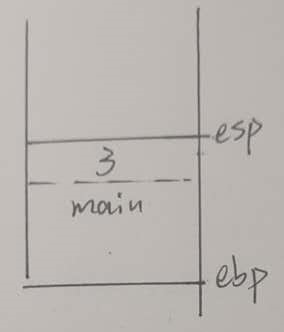 esp
3
main
ebp